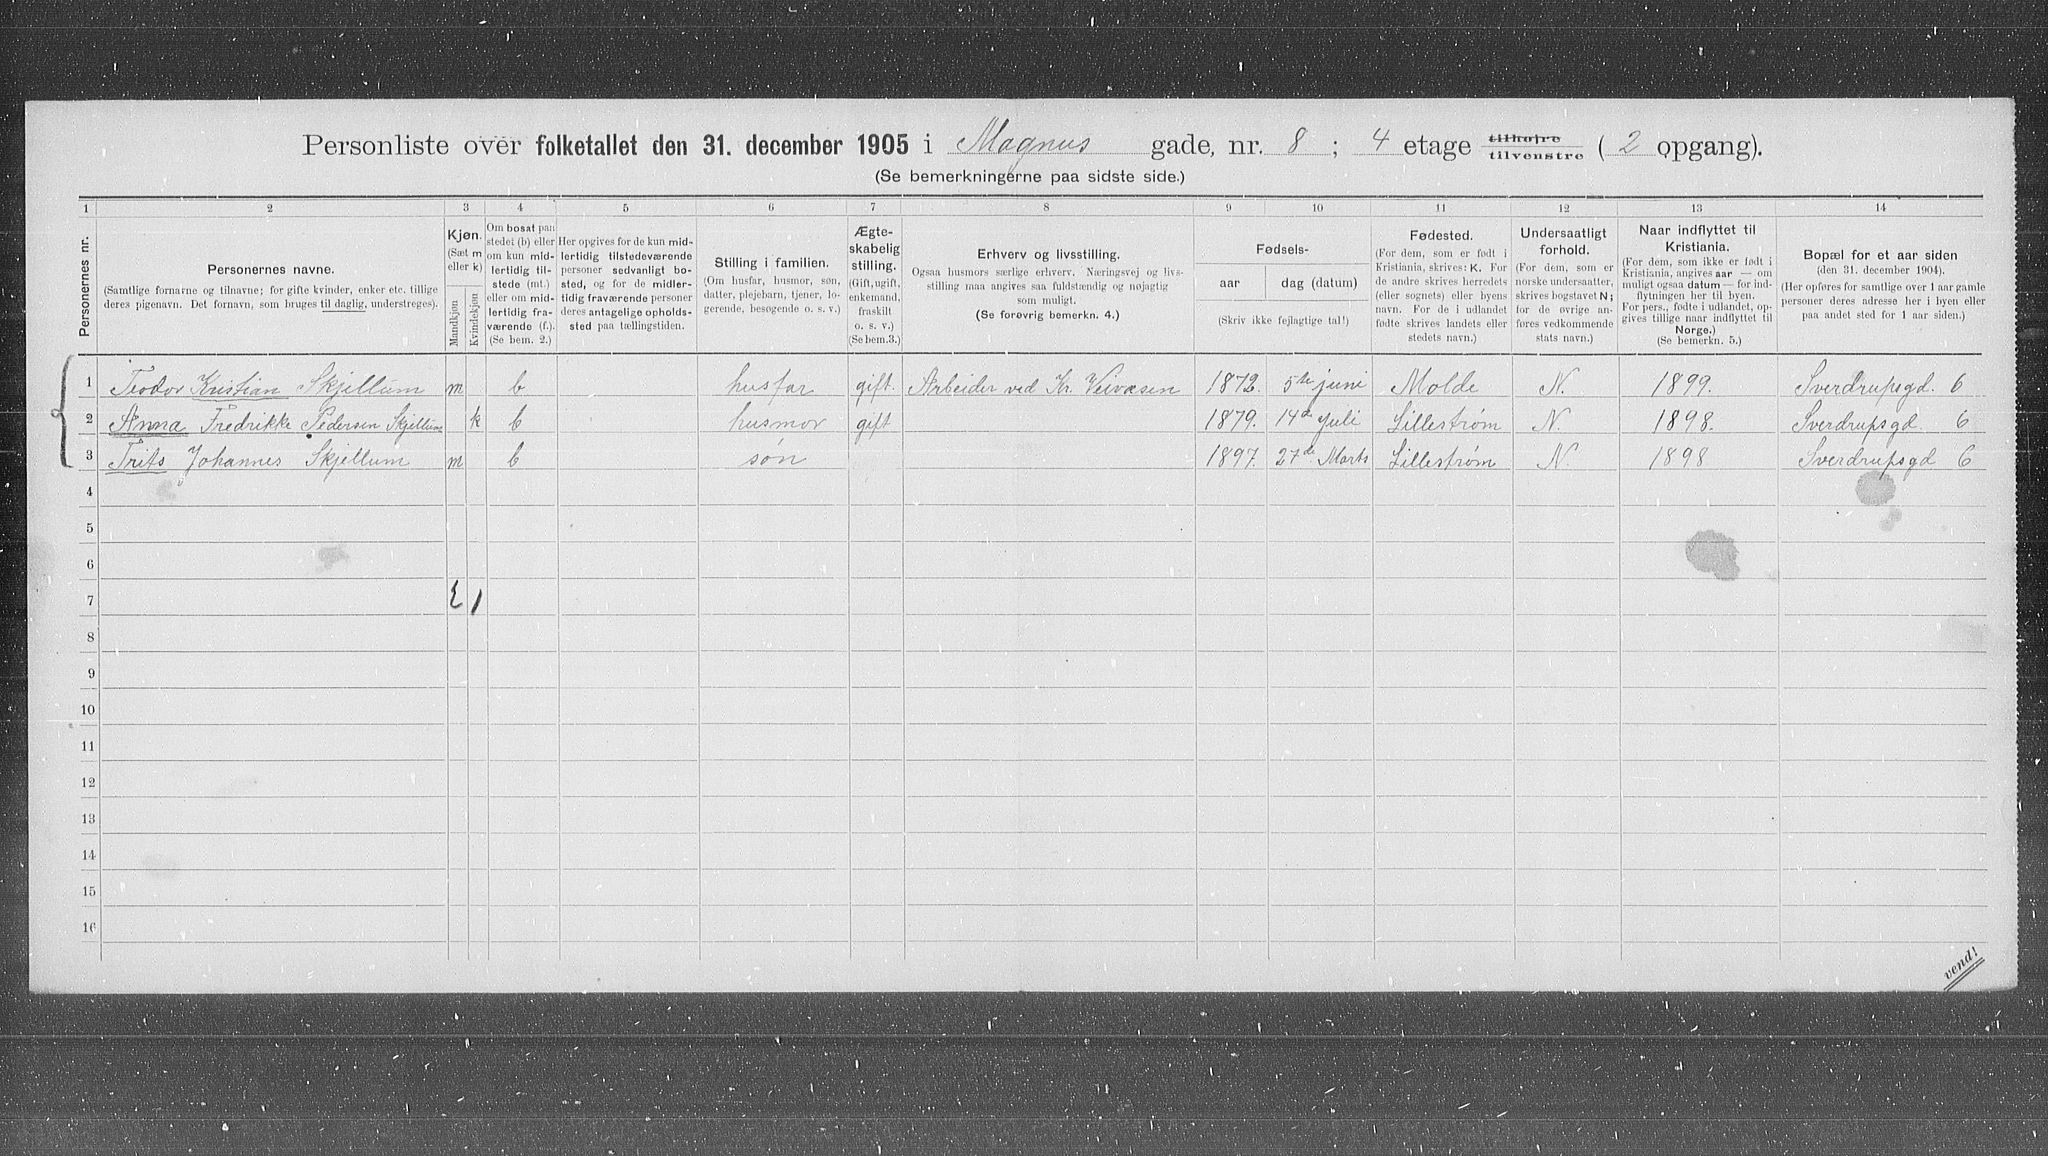 Personliste over folketallet den 31. december 1905 i Magnus gade, nr. 8; 4 etage tilhøjre tilvenstre (2 opgang).
(Se bemerkningerne paa sidste side.)
1 2 3 4 5 6 7 8 9 10 11 12 13 14
Personernes nr.
Personernes navne.
(Samtlige fornavne og tilnavne; for gifte kvinder, enker etc. tillige
deres pigenavn. Det fornavn, som bruges til daglig, understreges).
Kjøn.
(Sæt m
eller k)
Mandkjøn
Kvindekjøn
Om bosat paa
stedet (b) eller
om kun mid-
lertidig til-
stede (mt.)
eller om mid-
lertidig fra-
værende (f.).
(Se bem. 2.)
Her opgives for de kun mid-
lertidig tilstedeværende
personer sedvanligt bo-
sted, og for de midler-
tidig fraværende personer
deres antagelige opholds-
sted paa tællingstiden.
Stilling i familien.
(Om husfar, husmor, søn,
datter, plejebarn, tjener, lo-
gerende, besøgende
o. s. v.)
Ægte-
skabelig
stilling.
(Gift, ugift,
enkemand,
fraskilt
o. s. v.)
(Se bem.3.)
Erhverv og livsstilling.
Ogsaa husmors særlige erhverv. Næringsvej og livs-
stilling maa angives saa fuldstændig og nøjagtig
som muligt.
(Se forøvrig bemerkn. 4.)
Fødsels-
aar dag (datum)
(Skriv ikke fejlagtige tal!)
Fødested.
(For dem, som er født i
Kristiania, skrives: K. For
de andre skrives herredets
(eller sognets) eller byens
navn. For de i udlandet
fødte skrives landets eller
stedets navn.)
Undersaatligt
forhold.
(For dem, som er
norske undersaatter,
skrives bogstavet N;
for de øvrige an-
føres vedkommende
stats navn.)
Naar indflyttet til
Kristiania.
(For dem, som ikke er født i
Kristiania, angives aar — om
muligt ogsaa datum — for ind-
flytningen her til byen.
For pers., fødte i udlandet, op-
gives tillige naar indflyttet til
Norge.)
(Se bemerkn. 5.)
Bopæl for et aar siden
(den 31. december 1904).
(Her opføres for samtlige over 1 aar gamle
personer deres adresse her i byen eller
paa andet sted for 1 aar siden.)
1 Teodor Kristian Skjellum m b husfar gift. Arbeider ved Kr. Veivæsen 1872. 5te juni Molde N. 1899. Sverdrupsgd. 6
2 Anna Fredrikke Pedersen Skjellum k b husmor gift 1879. 14de Juli Lillestrøm N. 1898. Sverdrupsgd. 6
3 Frits Johannes Skjellum m b søn 1897. 27de Marts Lillestrøm N. 1898 Sverdrupsgd 6
4
5
6
7 2 1
8
9
10
11
12
13
14
15
16
vend!